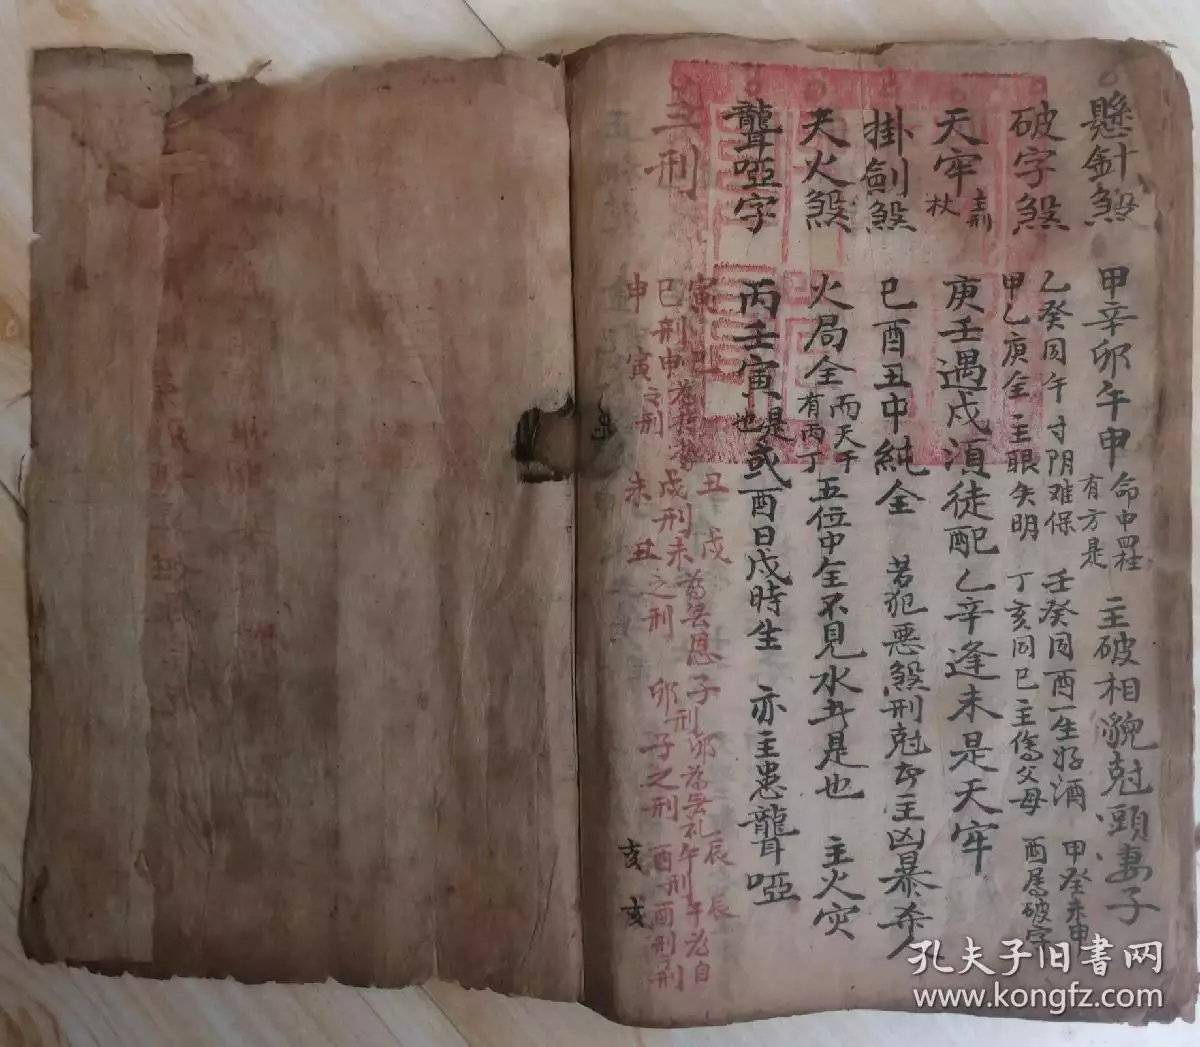 懸針煞 甲辛卯午申 命中四柱有方是 主破相貌尅頭妻子
破字煞 乙癸同午寸阴难保 壬癸同酉一生好酒 甲癸未申
甲乙庚金主眼失明 丁亥同巳主傷父母 酉為破字
天牢 主刑杖 庚壬遇戌湏徒配乙辛逢未是天牢
掛劍煞 巳酉丑申純全 若犯惡煞刑尅 主凶暴杀人
天火煞 火局全 而天干有丙丁 五位中全不見水 是也 主火灾
聾啞字 丙壬寅 是也 或酉日戌時生 亦主患聾啞
三刑 寅刑巳 丑刑戌 辰辰
巳刑申 戌刑未為無恩 子刑卯為無礼 午刑午为自
申寅之刑 未丑之刑 卯子之刑 酉刑酉刑
亥亥
孔夫子旧书网
www.kongfz.com